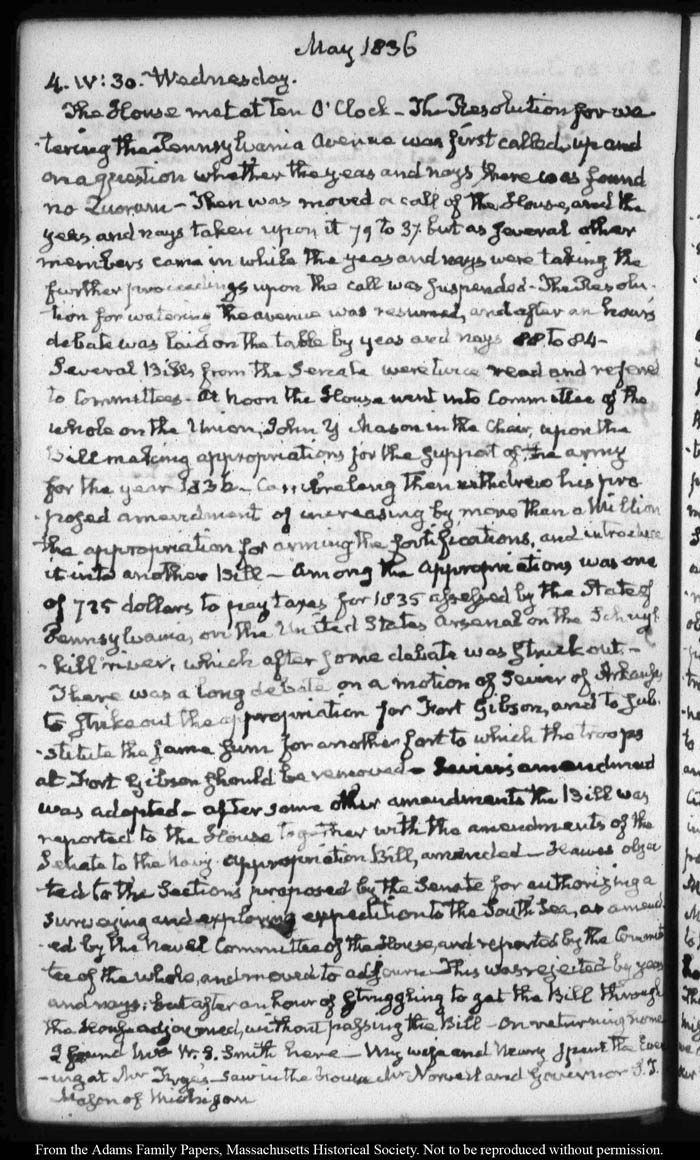 May 1836
4. IV: 30. Wednesday.
The House met at ten O'Clock – The Resolution for wa
-tering the Pennsylvania Avenue was first called up and
on a question whether the yeas and nays, there was found
no Quorum – Then was moved a call of the House, and the
yeas and nays taken upon it 79 to 37. but as several other
members came in while the yeas and nays were taking the
further proceedings upon the call was suspended – The Resolu-
-tion for watering the avenue was resumed, and after an hour's
debate was laid on the table by yeas and nays 88 to 84 –
Several Bills from the Senate were twice read and refered
to Committees – At noon the House went into Committee of the
whole on the Union, John Y Mason in the Chair, upon the
Bill making appropriations for the support of the army
for the year 1836 – Cambreleng then withdrew his pro
-posed amendment of increasing by more than a Million
the appropriation for arming the fortifications, and introduce
it into another Bill – Among the appropriations was one
of 725 dollars to pay taxes for 1835 assessed by the State of
Pennsylvania, on the United States Arsenal on the Schuyl
-kill river, which after some debate was struck out. –
There was a long debate on a motion of Sevier of Arkansas
to strike out the appropriation for Fort Gibson, and to sub.
-stitute the same sum for another fort to which the troops
at Fort Gibson should be removed – Sevier's amendment
was adopted – after some other amendments the Bill was
reported to the House together with the amendments of the
Senate to the Navy appropriation Bill, amended – Hawes objec
-ted to the Sections proposed by the Senate for authorizing a
surveying and exploring expedition to the South Sea, as amend
-ed by the Naval Committee of the House, and reported by the Commit
tee of the whole, and moved to adjourn – This was rejected by yeas
and nays: but after an hour of struggling to get the Bill through
the House adjourned, without passing the Bill – On returning home
I found Mrs W. S. Smith here – My wife and Henry spent the Eve
-ning at Mr Frye's – Saw in the House Mr Norvell and Governor S. T.
Mason of Michigan
From the Adams Family Papers, Massachusetts Historical Society. Not to be reproduced without permission.